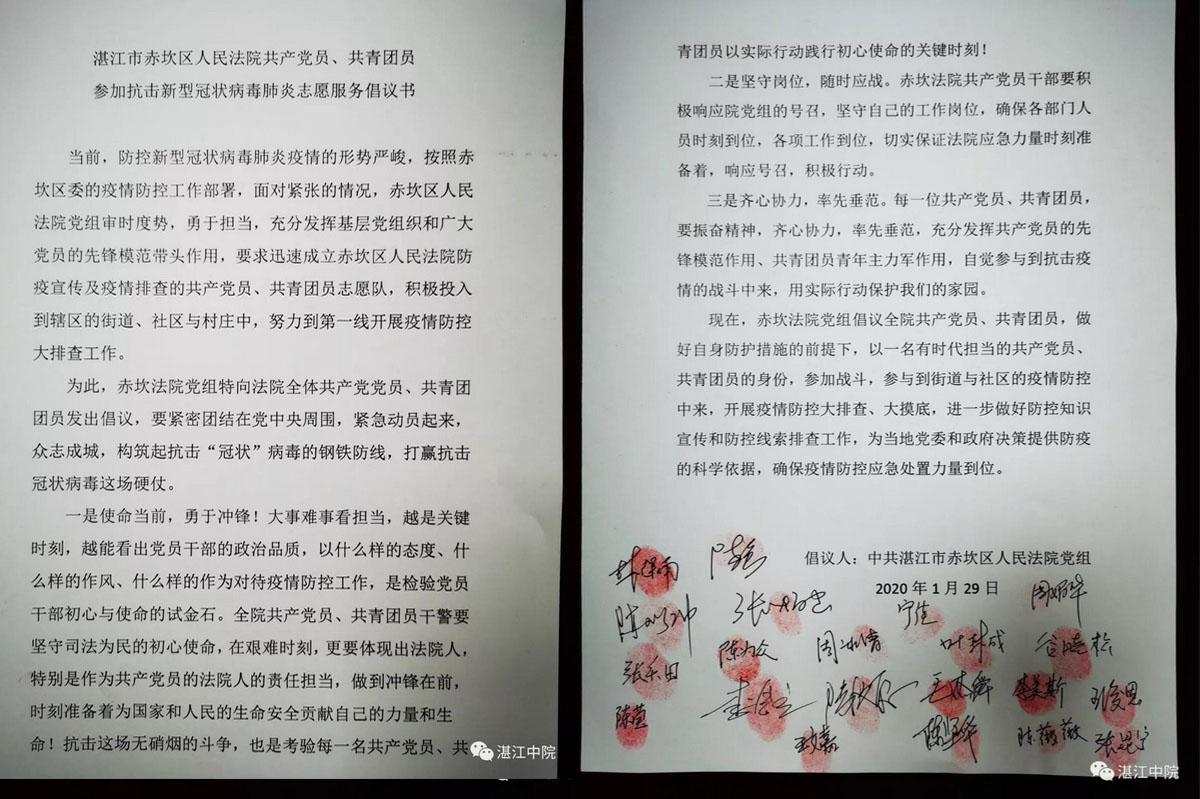 湛江市赤坎区人民法院共产党员、共青团员
参加抗击新型冠状病毒肺炎志愿服务倡议书
当前，防控新型冠状病毒肺炎疫情的形势严峻，按照赤
坎区委的疫情防控工作部署，面对紧张的情况，赤坎区人民
法院党组审时度势，勇于担当，充分发挥基层党组织和广大
党员的先锋模范带头作用，要求迅速成立赤坎区人民法院防
疫宣传及疫情排查的共产党员、共青团员志愿队，积极投入
到辖区的街道、社区与村庄中，努力到第一线开展疫情防控
大排查工作。
为此，赤坎法院党组特向法院全体共产党党员、共青团
团员发出倡议，要紧密团结在党中央周围，紧急动员起来，
众志成城，构筑起抗击“冠状”病毒的钢铁防线，打赢抗击
冠状病毒这场硬仗。
一是使命当前，勇于冲锋！大事难事看担当，越是关键
时刻，越能看出党员干部的政治品质，以什么样的态度、什
么样的作风、什么样的作为对待疫情防控工作，是检验党员
干部初心与使命的试金石。全院共产党员、共青团员干警要
坚守司法为民的初心使命，在艰难时刻，更要体现出法院人，
特别是作为共产党员的法院人的责任担当，做到冲锋在前，
时刻准备着为国家和人民的生命安全贡献自己的力量和生
命！抗击这场无硝烟的斗争，也是考验每一名共产党员、共
湛江中院
青团员以实际行动践行初心使命的关键时刻！
二是坚守岗位，随时应战。赤坎法院共产党员干部要积
极响应院党组的号召，坚守自己的工作岗位，确保各部门人
员时刻到位，各项工作到位，切实保证法院应急力量时刻准
备着，响应号召，积极行动。
三是齐心协力，率先垂范。每一位共产党员、共青团员，
要振奋精神，齐心协力，率先垂范，充分发挥共产党员的先
锋模范作用、共青团员青年主力军作用，自觉参与到抗击疫
情的战斗中来，用实际行动保护我们的家园。
现在，赤坎法院党组倡议全院共产党员、共青团员，做
好自身防护措施的前提下，以一名有时代担当的共产党员、
共青团员的身份，参加战斗，参与到街道与社区的疫情防控
中来，开展疫情防控大排查、大摸底，进一步做好防控知识
宣传和防控线索排查工作，为当地党委和政府决策提供防疫
的科学依据，确保疫情防控应急处置力量到位。
倡议人：中共湛江市赤坎区人民法院党组
2020年1月29日
宁佳
陈萱
陈薇薇
湛江中院